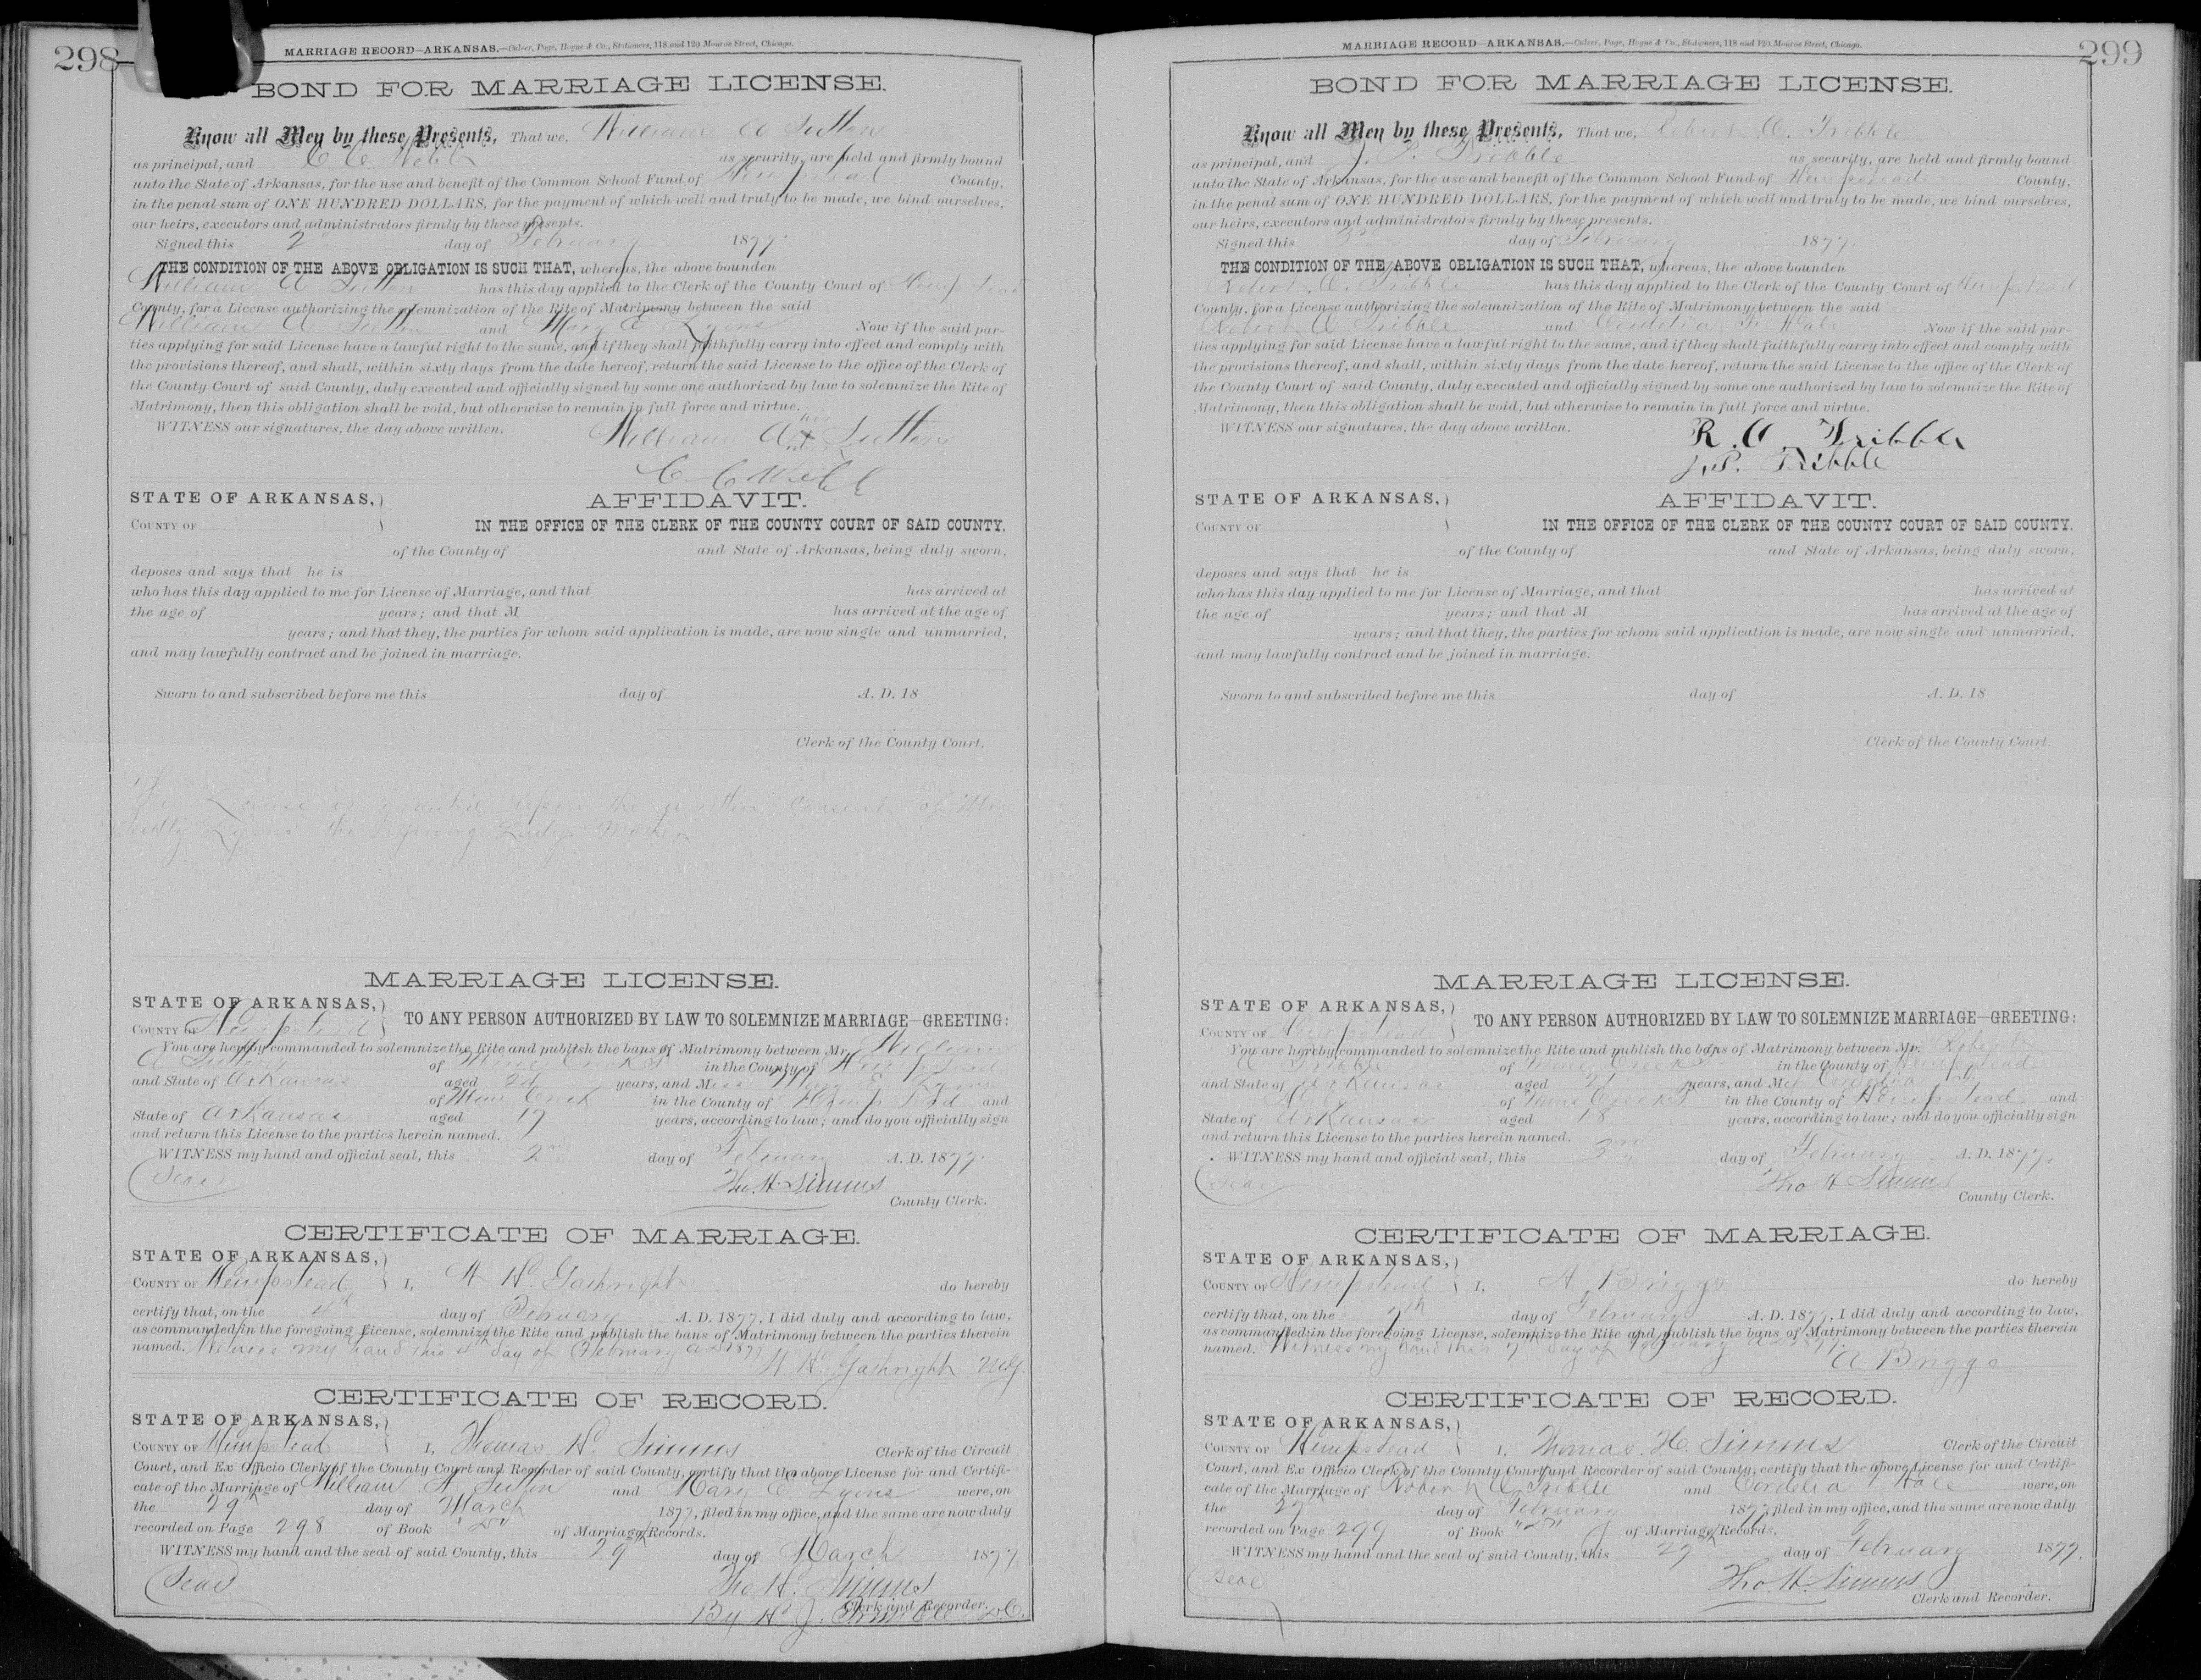 298
MARRIAGE RECORD—ARKANSAS.—Culver, Page, Hoyne & Co., Stationers, 118 and 120 Monroe Street, Chicago.
BOND FOR MARRIAGE LICENSE.
Know all Men by these Presents, That we, William A Sutton
as principal, and C C Webb as security, are held and firmly bound
unto the State of Arkansas, for the use and benefit of the Common School Fund of Hempstead County,
in the penal sum of ONE HUNDRED DOLLARS, for the payment of which well and truly to be made, we bind ourselves,
our heirs, executors and administrators firmly by these presents.
Signed this 2nd day of February 1877
THE CONDITION OF THE ABOVE OBLIGATION IS SUCH THAT, whereas, the above bounden
William A Sutton has this day applied to the Clerk of the County Court of Hempstead
County, for a License authorizing the solemnization of the Rite of Matrimony between the said
William A Sutton and Mary E Lyons Now if the said par-
ties applying for said License have a lawful right to the same, and if they shall faithfully carry into effect and comply with
the provisions thereof, and shall, within sixty days from the date hereof, return the said License to the office of the Clerk of
the County Court of said County, duly executed and officially signed by some one authorized by law to solemnize the Rite of
Matrimony, then this obligation shall be void, but otherwise to remain in full force and virtue.
WITNESS our signatures, the day above written. William A his x mark Sutton
C C Webb
STATE OF ARKANSAS, AFFIDAVIT.
COUNTY OF IN THE OFFICE OF THE CLERK OF THE COUNTY COURT OF SAID COUNTY.
of the County of and State of Arkansas, being duly sworn,
deposes and says that he is
who has this day applied to me for License of Marriage, and that has arrived at
the age of years; and that M has arrived at the age of
years; and that they, the parties for whom said application is made, are now single and unmarried,
and may lawfully contract and be joined in marriage.
Sworn to and subscribed before me this day of A. D. 18
Clerk of the County Court.
License is granted upon the written consent of Mrs
Lyons the young Ladys Mother
MARRIAGE LICENSE.
STATE OF ARKANSAS,
COUNTY OF Hempstead TO ANY PERSON AUTHORIZED BY LAW TO SOLEMNIZE MARRIAGE—GREETING:
You are hereby commanded to solemnize the Rite and publish the bans of Matrimony between Mr. William
A Sutton of Mine Creek in the County of Hempstead
and State of Arkansas aged 24 years, and Miss Mary E Lyons
of Mine Creek in the County of Hempstead and
State of Arkansas aged 17 years, according to law; and do you officially sign
and return this License to the parties herein named.
WITNESS my hand and official seal, this 2nd day of February A. D. 1877.
(Seal) Tho. H. Simms
County Clerk.
CERTIFICATE OF MARRIAGE.
STATE OF ARKANSAS,
COUNTY OF Hempstead I, H. Gathright do hereby
certify that, on the 4th day of February A. D. 1877, I did duly and according to law,
as commanded in the foregoing License, solemnize the Rite and publish the bans of Matrimony between the parties therein
named. Witness my hand this 4th day of February AD 1877
Gathright
CERTIFICATE OF RECORD.
STATE OF ARKANSAS,
COUNTY OF Hempstead I, Thomas H. Simms Clerk of the Circuit
Court, and Ex Officio Clerk of the County Court and Recorder of said County, certify that the above License for and Certifi-
cate of the Marriage of William A Sutton and Mary E Lyons were, on
the 29th day of March 1877, filed in my office, and the same are now duly
recorded on Page 298 of Book of Marriage Records.
WITNESS my hand and the seal of said County, this 29th day of March 1877
(Seal) Tho H. Simms
Clerk and Recorder.
By D.C.
299
MARRIAGE RECORD—ARKANSAS.—Culver, Page, Hoyne & Co., Stationers, 118 and 120 Monroe Street, Chicago.
BOND FOR MARRIAGE LICENSE.
Know all Men by these Presents, That we, Robert A. Tribble
as principal, and J. P. Tribble as security, are held and firmly bound
unto the State of Arkansas, for the use and benefit of the Common School Fund of Hempstead County,
in the penal sum of ONE HUNDRED DOLLARS, for the payment of which well and truly to be made, we bind ourselves,
our heirs, executors and administrators firmly by these presents.
Signed this 3rd day of February 1877
THE CONDITION OF THE ABOVE OBLIGATION IS SUCH THAT, whereas, the above bounden
Robert A. Tribble has this day applied to the Clerk of the County Court of Hempstead
County, for a License authorizing the solemnization of the Rite of Matrimony between the said
Robert A Tribble and Cordelia F Hale Now if the said par-
ties applying for said License have a lawful right to the same, and if they shall faithfully carry into effect and comply with
the provisions thereof, and shall, within sixty days from the date hereof, return the said License to the office of the Clerk of
the County Court of said County, duly executed and officially signed by some one authorized by law to solemnize the Rite of
Matrimony, then this obligation shall be void, but otherwise to remain in full force and virtue.
WITNESS our signatures, the day above written. R. A. Tribble
J. P. Tribble
STATE OF ARKANSAS, AFFIDAVIT.
COUNTY OF IN THE OFFICE OF THE CLERK OF THE COUNTY COURT OF SAID COUNTY.
of the County of and State of Arkansas, being duly sworn,
deposes and says that he is
who has this day applied to me for License of Marriage, and that has arrived at
the age of years; and that M has arrived at the age of
years; and that they, the parties for whom said application is made, are now single and unmarried,
and may lawfully contract and be joined in marriage.
Sworn to and subscribed before me this day of A. D. 18
Clerk of the County Court.
MARRIAGE LICENSE.
STATE OF ARKANSAS,
COUNTY OF Hempstead TO ANY PERSON AUTHORIZED BY LAW TO SOLEMNIZE MARRIAGE—GREETING:
You are hereby commanded to solemnize the Rite and publish the bans of Matrimony between Mr. Robert
A Tribble of Mine Creek in the County of Hempstead
and State of Arkansas aged 21 years, and M Cordelia F.
Hale of Mine Creek in the County of Hempstead and
State of Arkansas aged 18 years, according to law; and do you officially sign
and return this License to the parties herein named.
WITNESS my hand and official seal, this 3rd day of February A. D. 1877.
(Seal) Tho H Simms
County Clerk.
CERTIFICATE OF MARRIAGE.
STATE OF ARKANSAS,
COUNTY OF Hempstead I, A Briggs do hereby
certify that, on the 7th day of February A. D. 1877, I did duly and according to law,
as commanded in the foregoing License, solemnize the Rite and publish the bans of Matrimony between the parties therein
named. Witness my hand this 7th day of February AD 1877.
A Briggs
CERTIFICATE OF RECORD.
STATE OF ARKANSAS,
COUNTY OF Hempstead I, Thomas. H. Simms Clerk of the Circuit
Court, and Ex Officio Clerk of the County Court and Recorder of said County, certify that the above License for and Certifi-
cate of the Marriage of Robert A Tribble and Cordelia F Hale were, on
the 27th day of February 1877, filed in my office, and the same are now duly
recorded on Page 299 of Book of Marriage Records.
WITNESS my hand and the seal of said County, this 27th day of February 1877.
(Seal) Tho. H. Simms
Clerk and Recorder.